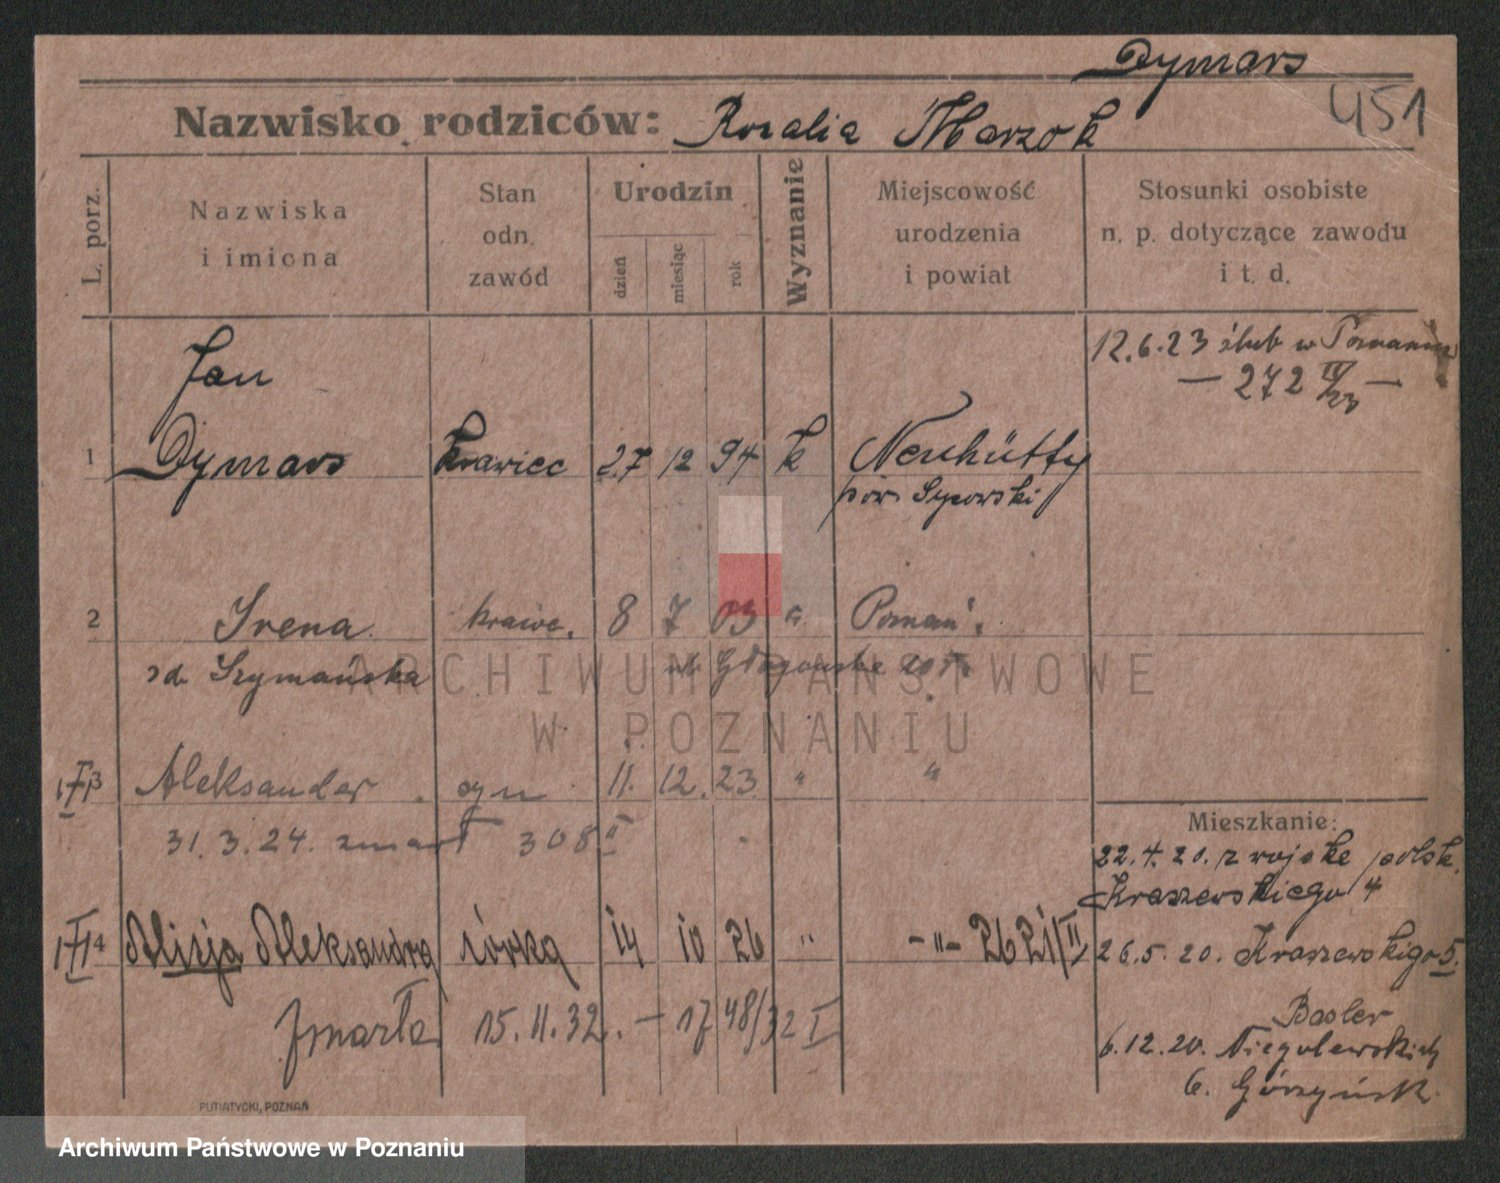 Dymars
451
Nazwisko rodziców: Rozalia Marzok
L. porz.
Nazwiska i imiona
Stan odn. zawód
Urodzin
dzień miesiąc rok
Wyznanie
Miejscowość urodzenia i powiat
Stosunki osobiste n. p. dotyczące zawodu i t. d.
12.6.23 ślub w Poznaniu
— 272 IV/23 —
Jan
1 Dymars krawiec 27 12 94 k Neuhütte
pow. Sycowski
2 Irena krawc. 8 7 03 Poznań.
zd. Szymańska ul.
3 Aleksander syn 11. 12. 23 " "
31.3.24. zmarł 308 II
4 Alicja Aleksandra córka 14 10 26 " -"- 2621/II
zmarła 15.11.32. — 1748/32 I
Mieszkanie:
22.4.20. z wojska polsk.
Kraszewskiego 4
26.5.20. Kraszewskigo 5.
Basler
6.12.20. Niegolewskich
6. Górzyńsk.
PUTIATYCKI, POZNAŃ
ARCHIWUM PAŃSTWOWE
W POZNANIU
Archiwum Państwowe w Poznaniu